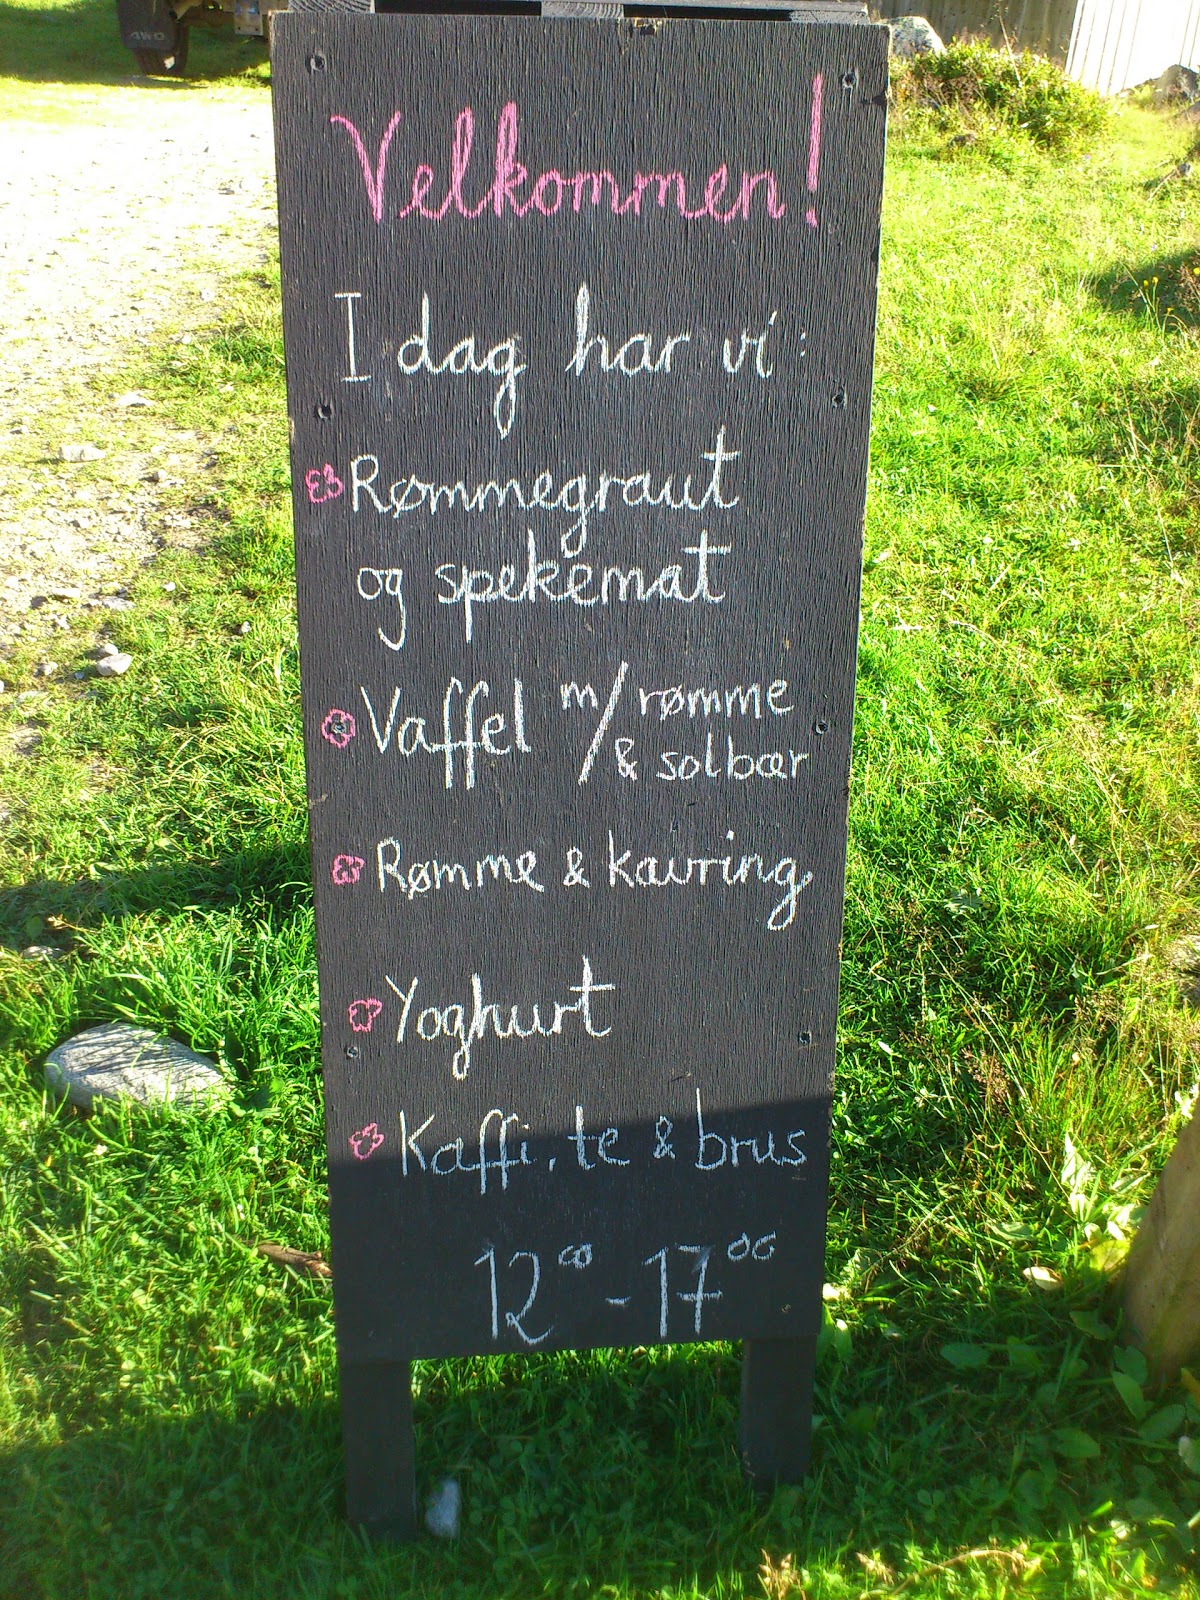 4WD
Velkommen!
I dag har vi:
Rømmegraut
og spekemat
Vaffel m/rømme
& solbær
Rømme & kavring
Yoghurt
Kaffi, te & brus
12⁰⁰ - 17⁰⁰